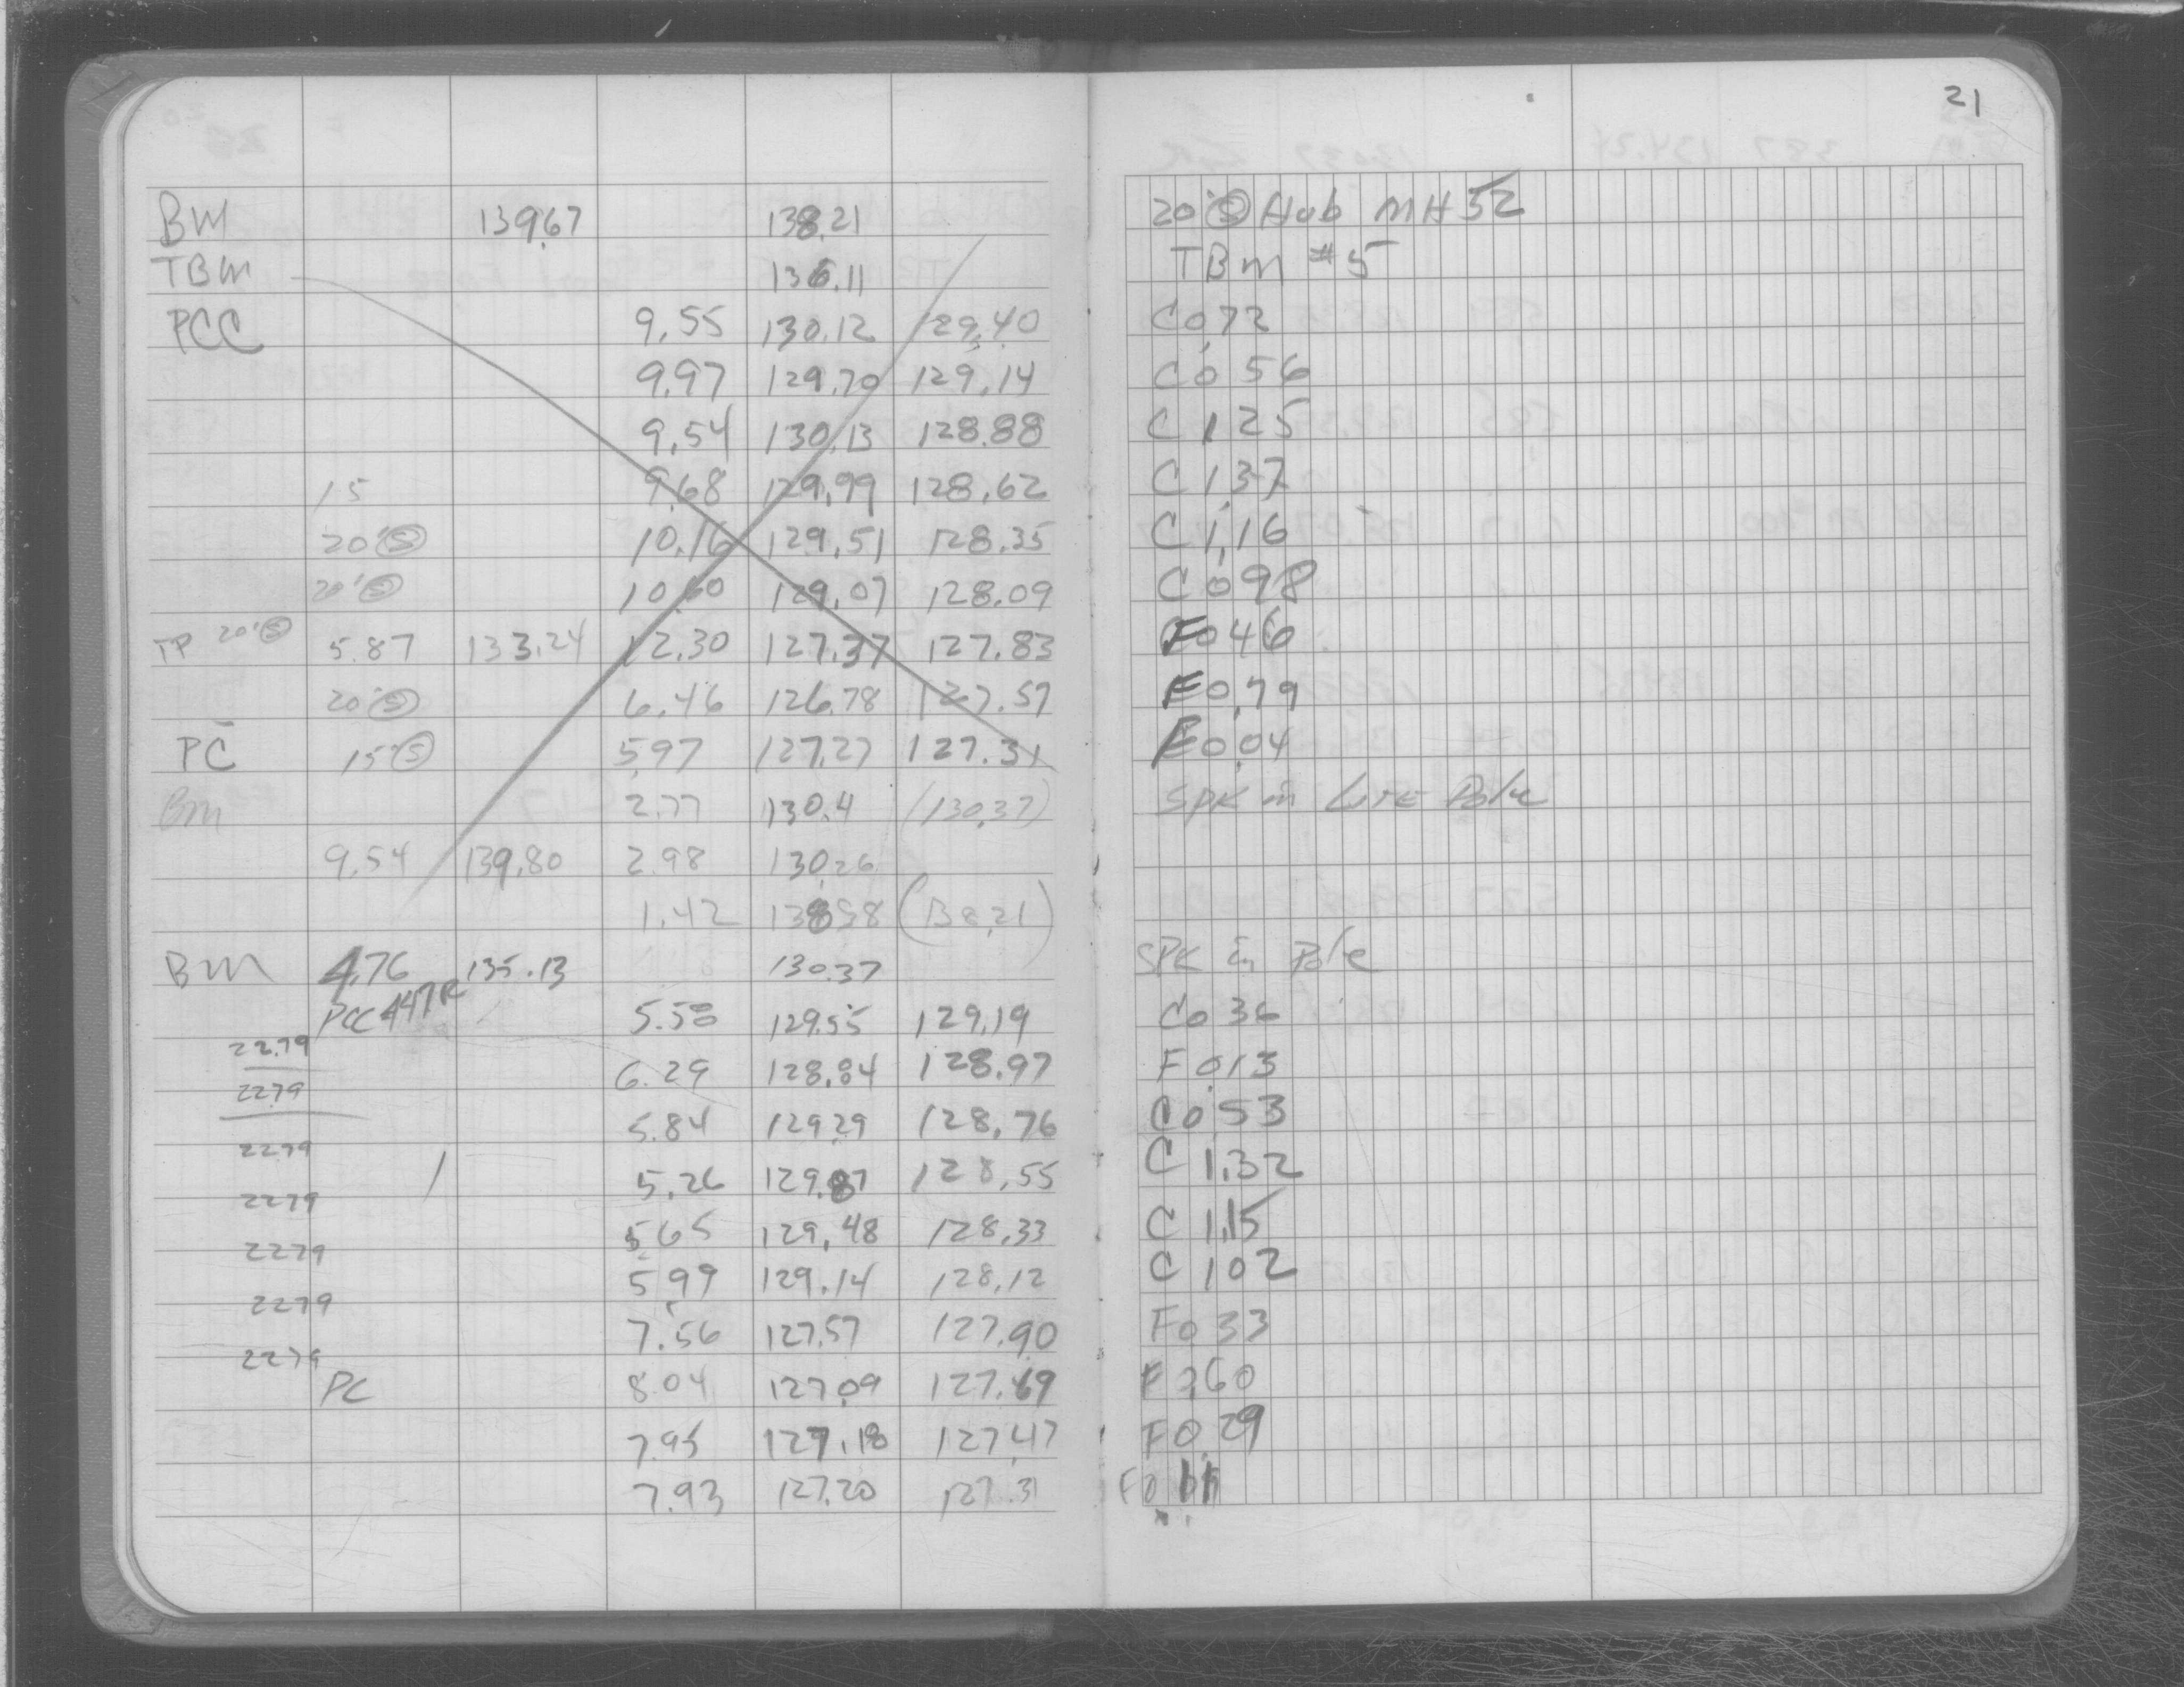 21
BM 139.67 138.21 20' Ⓢ Hub MH 52
TBM 136.11 TBM #5
PCC 9.55 130.12 129.40 C 0.72
9.97 129.70 129.14 C 0.56
9.54 130.13 128.88 C 1.25
15 9.68 129.99 128.62 C 1.37
20'Ⓢ 10.16 129.51 128.35 C 1.16
20'Ⓢ 10.60 129.07 128.09 C 0.98
TP 20'Ⓢ 5.87 133.24 12.30 127.37 127.83 F 0.46
20'Ⓢ 6.46 126.78 127.57 F 0.79
PC 15'Ⓢ 5.97 127.27 127.31 F 0.04
BM 2.77 130.4 (130.37) SPK in Lite Pole
9.54 139.80 2.98 130.26
1.42 (138.21)
BM 4.76 135.13 130.37 SPK in Pole
PCC 447R 5.58 129.55 129.19 C 0.36
22.79 6.29 128.84 128.97 F 0.13
22.79 5.84 129.29 128.76 C 0.53
22.79 5.26 129.87 128.55 C 1.32
22.79 5.65 129.48 128.33 C 1.15
22.79 5.99 129.14 128.12 C 1.02
22.79 7.56 127.57 127.90 F 0.33
22.79 PC 8.04 127.09 127.69 F 0.60
7.95 127.18 127.47 F 0.29
7.93 127.20 127.31 F 0.11